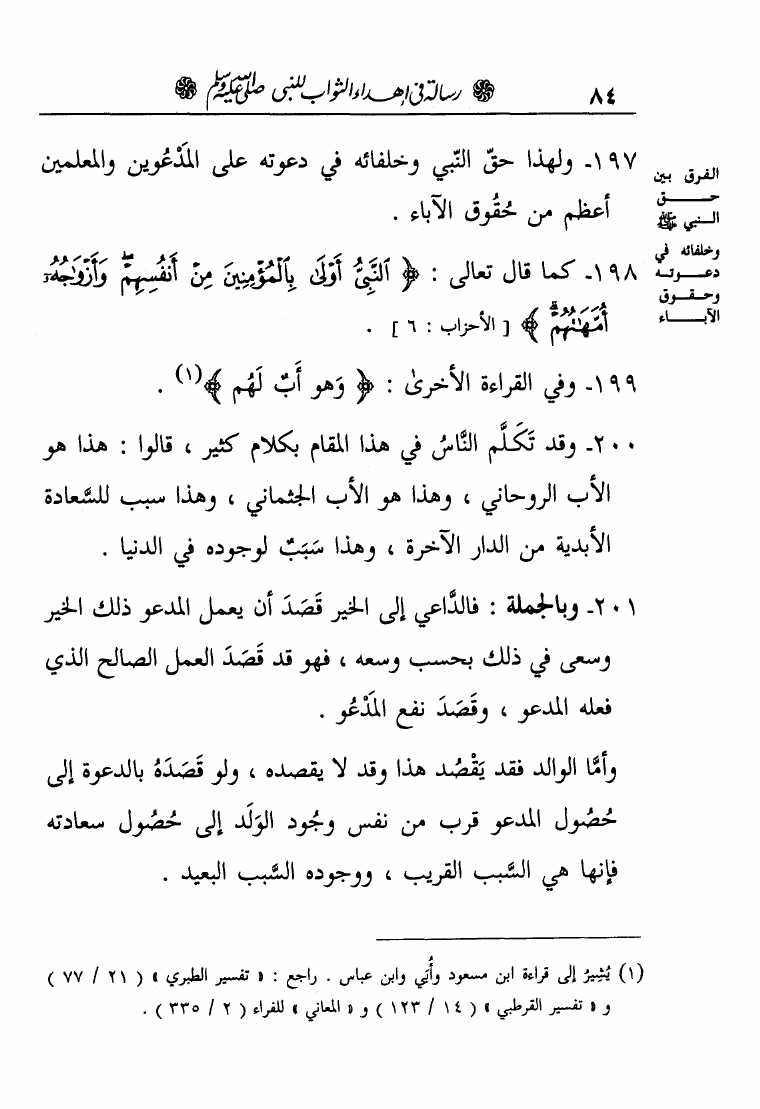 ٨٤
رسالة في إهداء الثواب للنبي صلى الله عليه وسلم
١٩٧ـ ولهذا حقّ النّبي وخلفائه في دعوته على المَدْعُوين والمعلمين
أعظم من حُقُوق الآباء .
الفرق بين
حـــــق
النـــبي ﷺ
وخلفائه في
دعـــوتـه
وحـقـوق
الآبـــــاء
١٩٨ـ كما قال تعالى : ﴿ ٱلنَّبِيُّ أَوْلَىٰ بِٱلْمُؤْمِنِينَ مِنْ أَنفُسِهِمْ ۖ وَأَزْوَٰجُهُۥٓ
أُمَّهَٰتُهُمْ ۗ ﴾ [ الأحزاب : ٦ ] .
١٩٩ـ وفي القراءة الأخرىٰ : ﴿ وَهو أَبٌ لَهُم ﴾(١) .
٢٠٠ـ وقد تَكَلَّم النَّاسُ في هذا المقام بكلام كثير ، قالوا : هذا هو
الأب الروحاني ، وهذا هو الأب الجثماني ، وهذا سبب للسَّعادة
الأبدية من الدار الآخرة ، وهذا سَبَبٌ لوجوده في الدنيا .
٢٠١ـ وبالجملة : فالدَّاعي إلى الخير قَصَدَ أن يعمل المدعو ذلك الخير
وسعى في ذلك بحسب وسعه ، فهو قد قَصَدَ العمل الصالح الذي
فعله المدعو ، وقَصَدَ نفع المَدْعُو .
وأمَّا الوالد فقد يَقْصُد هذا وقد لا يقصده ، ولو قَصَدَهُ بالدعوة إلى
حُصُول المدعو قرب من نفس وجُود الوَلَد إلى حُصُول سعادته
فإنها هي السَّبب القريب ، ووجوده السَّبب البعيد .
(١) يُشِيرُ إلى قراءة ابن مسعود وأُبَي وابن عباس . راجع : « تفسير الطبري » ( ٢١ / ٧٧ )
و « تفسير القرطبي » ( ١٤ / ١٢٣ ) و « المعاني » للفراء ( ٢ / ٣٣٥ ) .